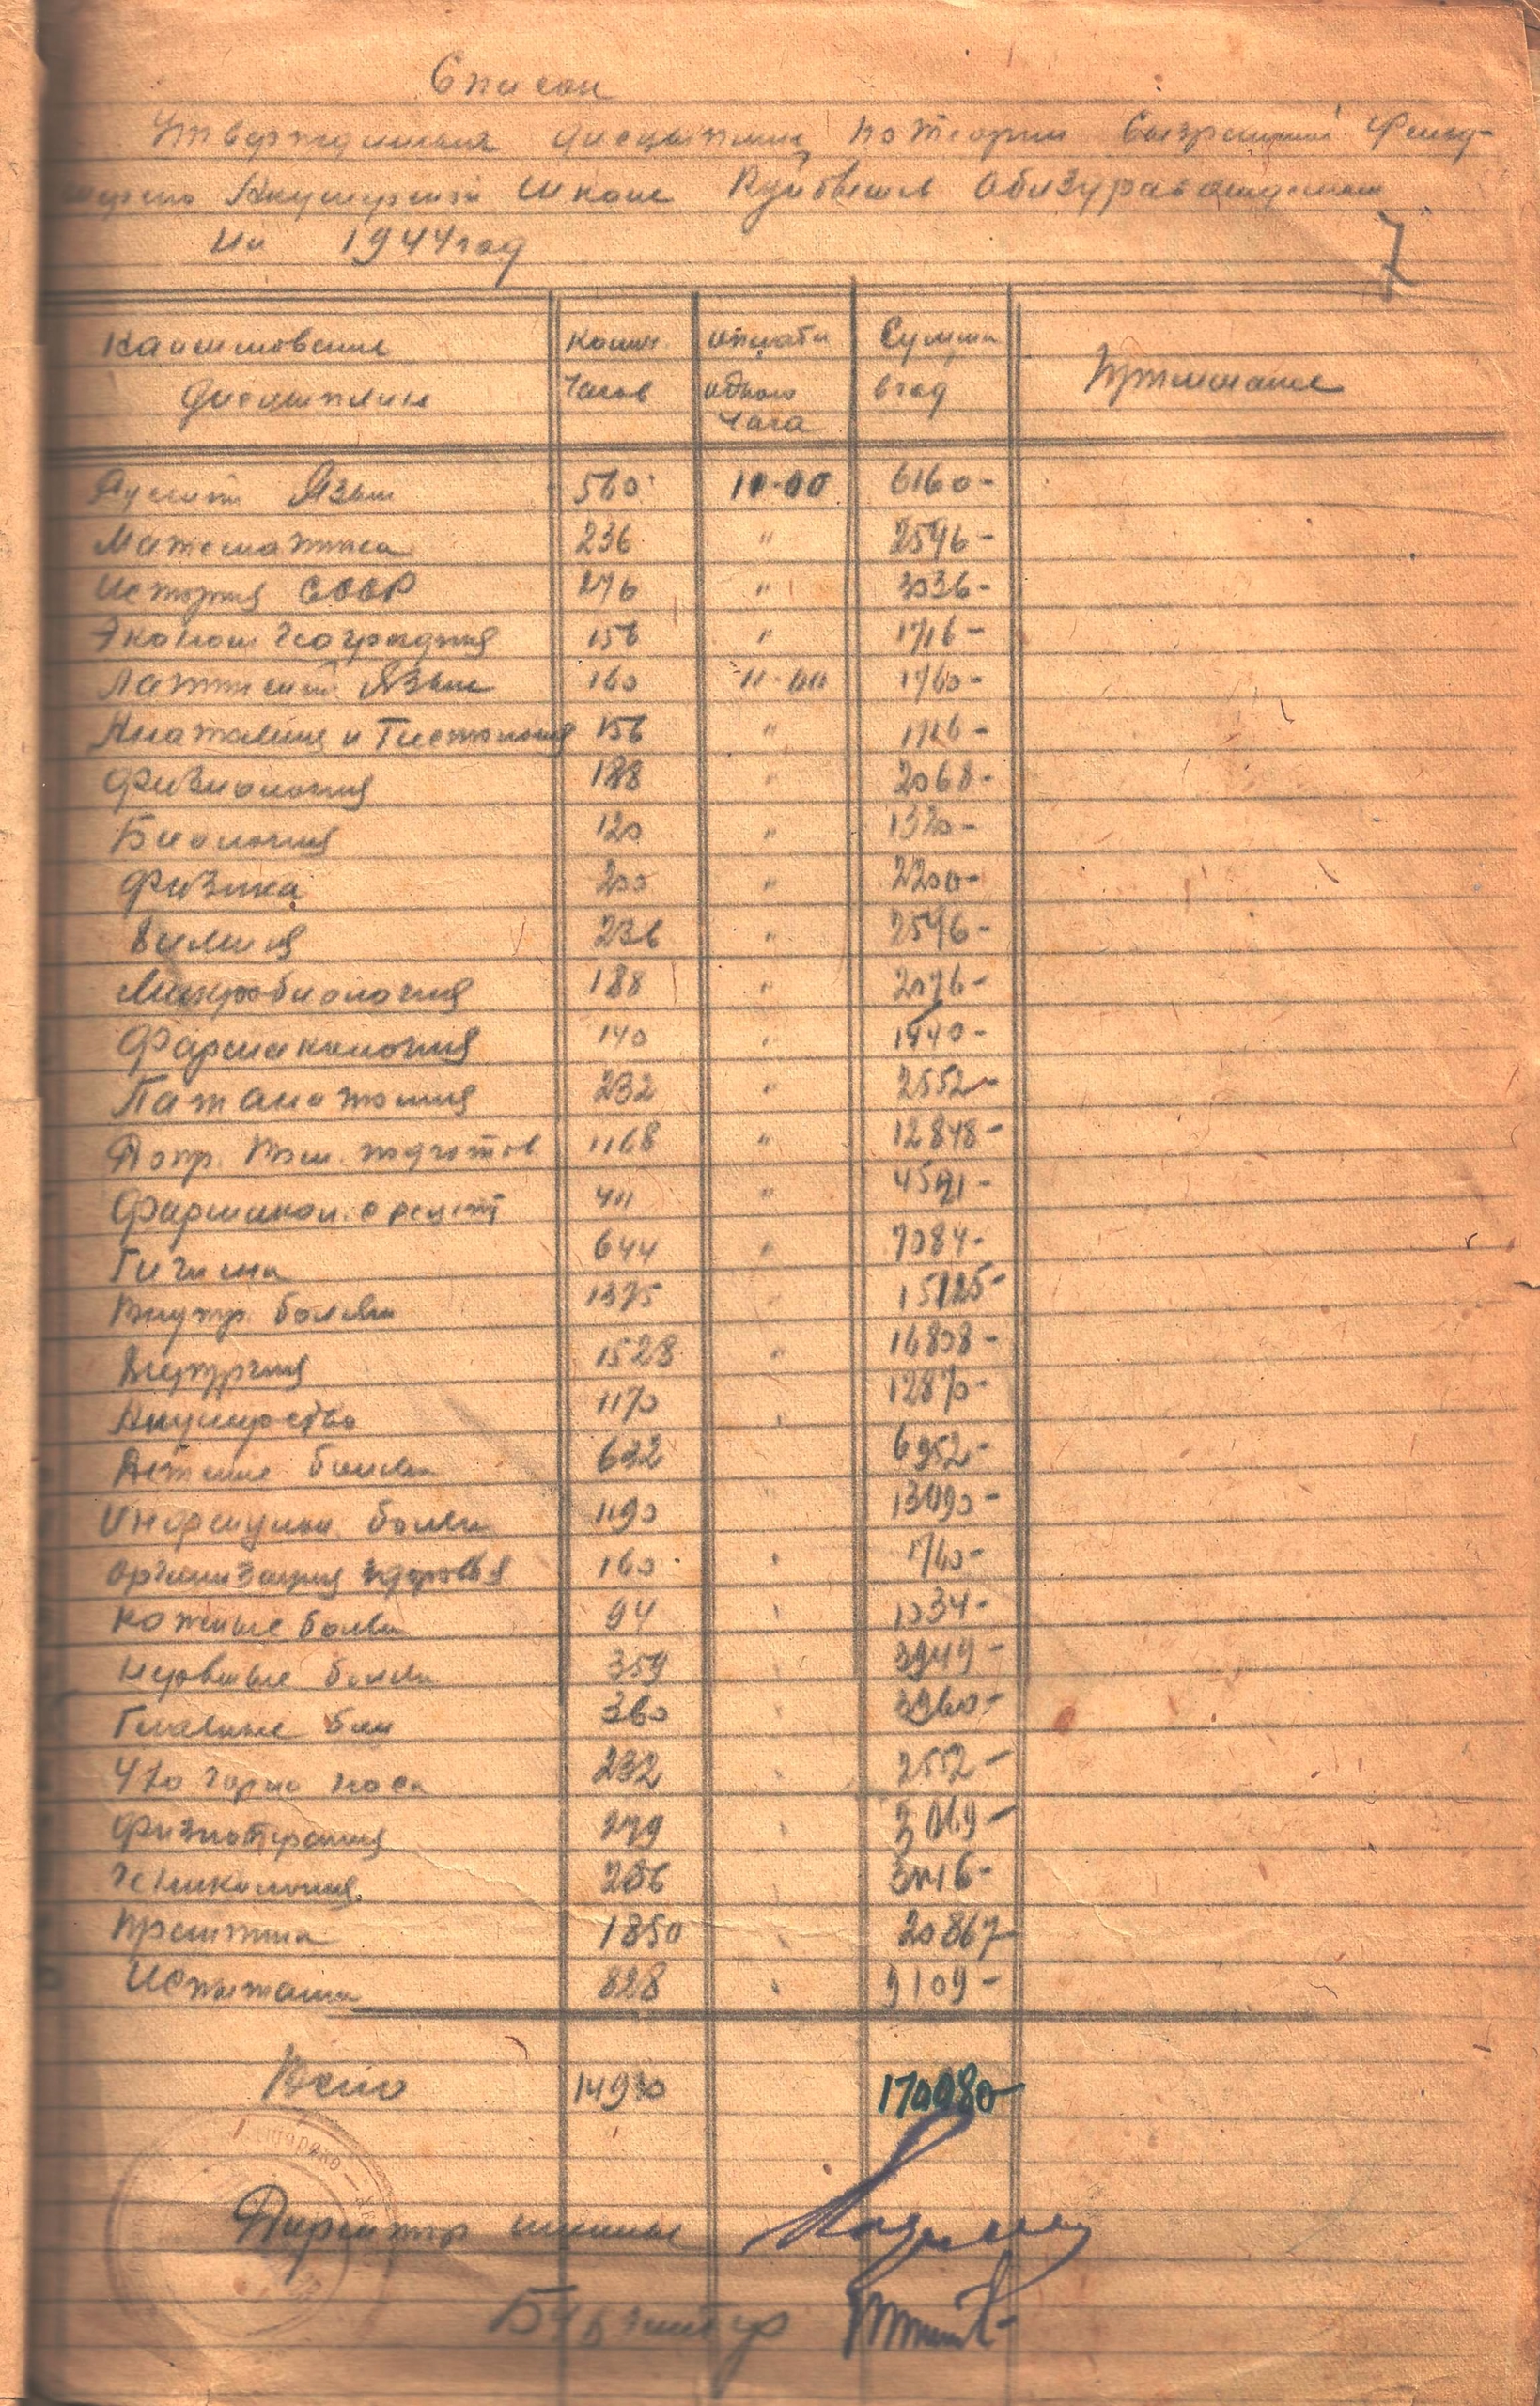 Список
Утвержденных дисцыплин по теории Сызранской Фельд-
шерско Акушерской Школе Куйбышев Облздравотдела
на 1944 год
7
Наименование Колич. оплата Сумма Примечание
дисцыплин Часов одного в год
Часа
Русский Язык 560 11-00 6160-
Математика 236 " 2596-
История СССР 276 " 3036-
Эконом География 156 " 1716-
Латинский Язык 160 11-00 1760-
Анатомия и Гистология 156 " 1716-
Физиология 188 " 2068-
Биология 120 " 1320-
Физика 200 " 2200-
Химия 236 " 2596-
Микробиология 188 " 2076-
Фармакология 140 " 1540-
Патанатомия 232 " 2552-
Допр. Воен. подготов 1168 " 12848-
Фармакол. с рецепт 411 " 4521-
Гигиена 644 " 7084-
Внутр. болезни 1375 " 15125-
Хирургия 1528 " 16808-
Акушерство 1170 " 12870-
Детские болезни 632 " 6952-
Инфекцион. болезни 1190 " 13090-
Организация здоровья 160 " 1760-
Кожные болезни 94 " 1034-
Нервные болезни 359 " 3949-
Глазные бол 360 " 3960-
Ухо горло носа 232 " 2552-
Физиотерапия 279 " 3069-
Гениколония 286 " 3016-
Практика 1850 " 20867-
Испытания 828 " 9109-
Всего 14930 170980-
Директор школы
Бухгалтер